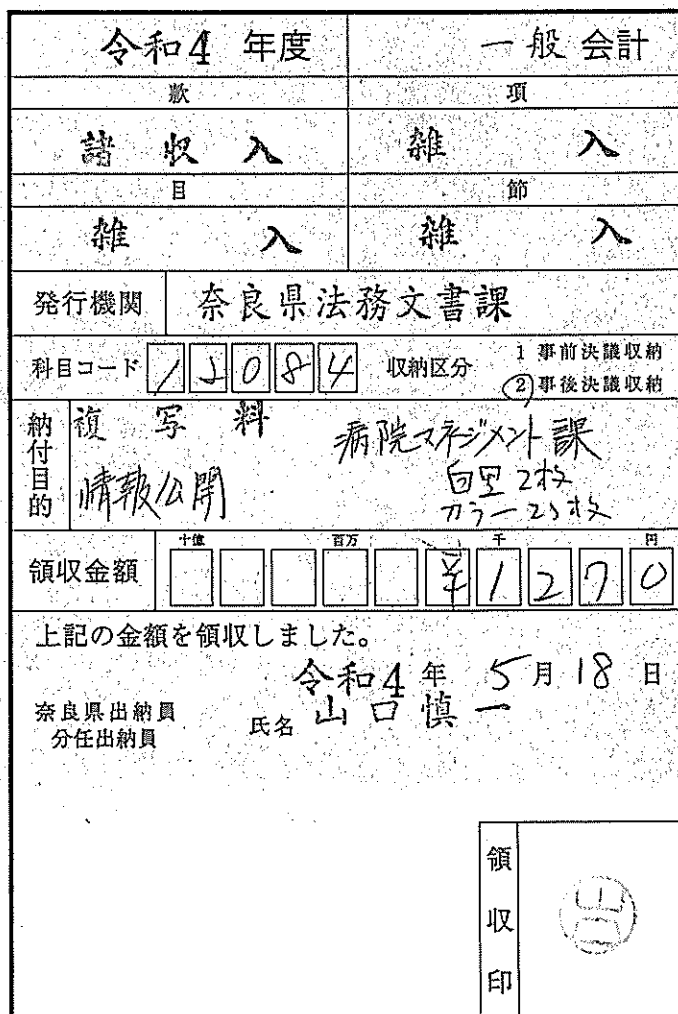 令和4 年度 一般 会計
款 項
諸 収 入 雑 入
目 節
雑 入 雑 入
発行機関 奈良県法務文書課
科目コード 15084 収納区分 1 事前決議収納
2 事後決議収納
納付目的 複 写 料 病院マネジメント課
情報公開 白黒 2枚
カラー 25枚
十億 百万 千 円
領収金額 ¥1270
上記の金額を領収しました。
令和4 年 5月 18 日
奈良県出納員
分任出納員
氏名 山口慎一
領収印
山口